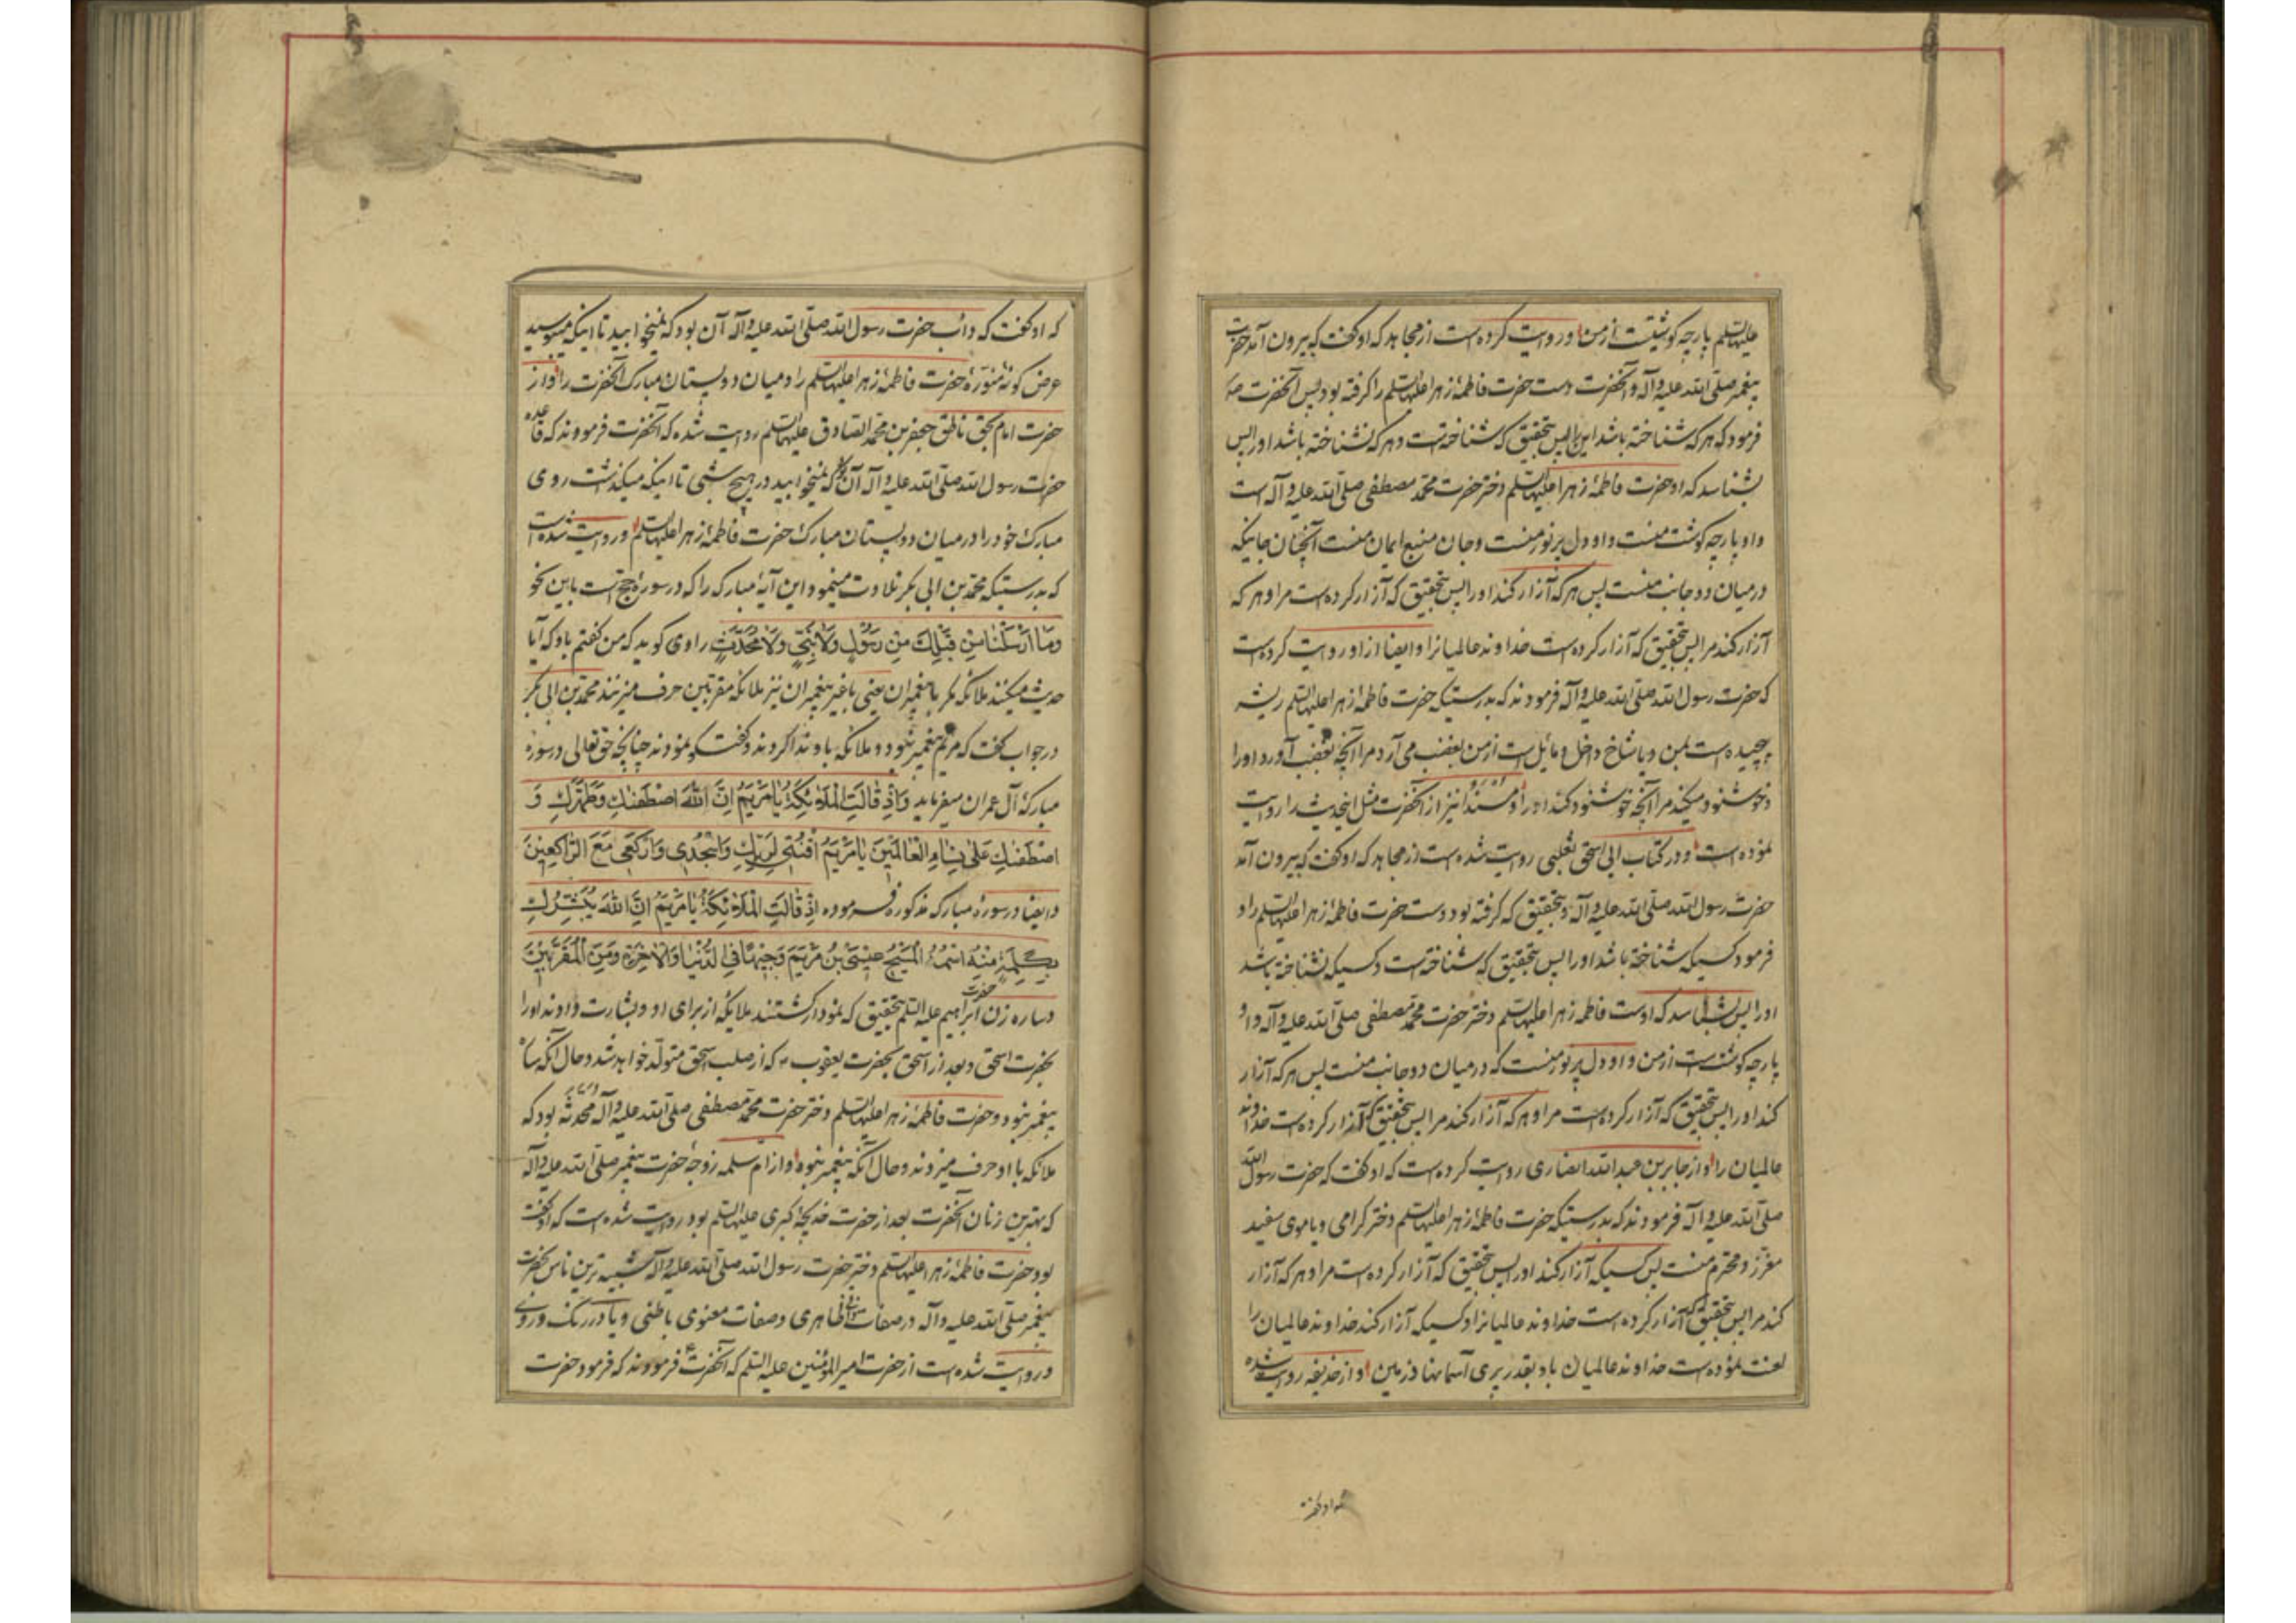 علیها السلم پارچه گوشتیست از من و روایت کرده است از مجاهد که او گفت که بیرون آمد حضرت
پیغمبر صلّی الله علیه و آله و آنحضرت دست حضرت فاطمهٔ زهرا علیها السلم را گرفته بود پس آنحضرت صلی
فرمود که هر که شناخته باشد این را پس بتحقیق که شناخته است و هر که نشناخته باشد او را پس
بشناسد که او حضرت فاطمهٔ زهرا علیها السلم دختر حضرت محمد مصطفی صلّی الله علیه و آله است
و او پارچه گوشت منست و او دل پر نور منست و جان منبع ایمان منست آنچنان جانیکه
در میان دو جانب منست پس هر که آزار کند او را پس بتحقیق که آزار کرده است مرا و هر که
آزار کند مرا پس بتحقیق که آزار کرده است خداوند عالمیانرا و ایضا از او روایت کرده است
که حضرت رسول الله صلّی الله علیه و آله فرمودند که بدرستیکه حضرت فاطمهٔ زهرا علیها السلم ریشه
پیچیده است بمن و یا شاخ داخل و مایل است از من بغضب می آرد مرا آنچه بغضب آورد او را
و خوشنود میکند مرا آنچه خوشنود کند او را و مسندا نیز از آنحضرت مثل اینحدیث را روایت
نموده است و در کتاب ابی اسحق ثعلبی روایت شده است از مجاهد که او گفت که بیرون آمد
حضرت رسول الله صلّی الله علیه و آله و بتحقیق که گرفته بود دست حضرت فاطمهٔ زهرا علیها السلم را و
فرمود کسیکه شناخته باشد او را پس بتحقیق که شناخته است و کسیکه نشناخته باشد
او را پس بشناسد که اوست فاطمه زهرا علیها السلم دختر حضرت محمد مصطفی صلّی الله علیه و آله و او
پارچه گوشت است از من و او دل پر نور منست که در میان دو جانب منست پس هر که آزار
کند او را پس بتحقیق که آزار کرده است مرا و هر که آزار کند مرا پس بتحقیق که آزار کرده است خداوند
عالمیان را و از جابر بن عبد الله انصاری روایت کرده است که او گفت که حضرت رسول الله
صلّی الله علیه و آله فرمودند که بدرستیکه حضرت فاطمهٔ زهرا علیها السلم دختر گرامی و یا موی سفید
معزّز و محترم منست پس کسیکه آزار کند او را پس بتحقیق که آزار کرده است مرا و هر که آزار
کند مرا پس بتحقیق که آزار کرده است خداوند عالمیانرا و کسیکه آزار کند خداوند عالمیان را
لعنت نموده است خداوند عالمیان باو بقدر پری آسمانها و زمین و از حذیفه روایت شده
که او گفت که دأب حضرت رسول الله صلّی الله علیه و آله آن بود که نمیخوابید تا اینکه میبوسید
عرض گونهٔ منوّرهٔ حضرت فاطمهٔ زهرا علیها السلم را و میان دو پستان مبارک آنحضرت را و از
حضرت امام بحق ناطق جعفر بن محمد الصادق علیهما السلم روایت شده که آنحضرت فرمودند که قاعده
حضرت رسول الله صلّی الله علیه و آله آن بود که نمیخوابید در هیچ شبی تا اینکه میگذاشت روی
مبارک خود را در میان دو پستان مبارک حضرت فاطمهٔ زهرا علیها السلم و روایت شده است
که بدرستیکه محمد بن ابی بکر تلاوت مینمود این آیهٔ مبارکه را که در سورهٔ حج است باین نحو
وَمَا اَرْسَلْنَا مِنْ قَبْلِكَ مِنْ رَسُولٍ وَلَا نَبِيٍّ وَلَا مُحَدَّثٍ راوی گوید که من گفتم باو که آیا
حدیث میکنند ملائکه مگر با پیغمبران یعنی با غیر پیغمبران نیز ملائکه مقربین حرف میزنند محمد بن ابی بکر
در جواب گفت که مریم پیغمبر نبود و ملائکه باو ندا کردند و گفتگو نمودند چنانچه حق تعالی در سورهٔ
مبارکهٔ آل عمران میفرماید وَاِذْ قَالَتِ الْمَلَائِكَةُ يَا مَرْيَمُ اِنَّ اللهَ اصْطَفَاكِ وَطَهَّرَكِ وَ
اصْطَفَاكِ عَلَى نِسَاءِ الْعَالَمِينَ يَا مَرْيَمُ اقْنُتِي لِرَبِّكِ وَاسْجُدِي وَارْكَعِي مَعَ الرَّاكِعِينَ
و ایضا در سورهٔ مبارکه مذکوره فرموده اِذْ قَالَتِ الْمَلَائِكَةُ يَا مَرْيَمُ اِنَّ اللهَ يُبَشِّرُكِ
بِكَلِمَةٍ مِنْهُ اسْمُهُ الْمَسِيحُ عِيسَى بْنُ مَرْيَمَ وَجِيهًا فِي الدُّنْيَا وَالْآخِرَةِ وَمِنَ الْمُقَرَّبِينَ
و ساره زن حضرت ابراهیم علیه السلم بتحقیق که نمودار گشتند ملایکه از برای او و بشارت دادند او را
بحضرت اسحق و بعد از اسحق بحضرت یعقوب که از صلب اسحق متولّد خواهد شد و حال آنکه ساره
پیغمبر نبود و حضرت فاطمهٔ زهرا علیها السلم دختر حضرت محمد مصطفی صلّی الله علیه و آله محدثه بود که
ملائکه با او حرف میزدند و حال آنکه پیغمبر نبود و از ام سلمه زوجهٔ حضرت پیغمبر صلّی الله علیه و آله
که بهترین زنان آنحضرت بعد از حضرت خدیجهٔ کبری علیها السلم بود روایت شده است که او گفت
بود حضرت فاطمهٔ زهرا علیها السلم دختر حضرت رسول الله صلّی الله علیه و آله شبیه ترین ناس بحضرت
پیغمبر صلّی الله علیه و آله در صفات ظاهری و صفات معنوی باطنی و یا در رنگ و روی
و روایت شده است از حضرت امیر المؤمنین علیه السلم که آنحضرت فرمودند که فرمود حضرت